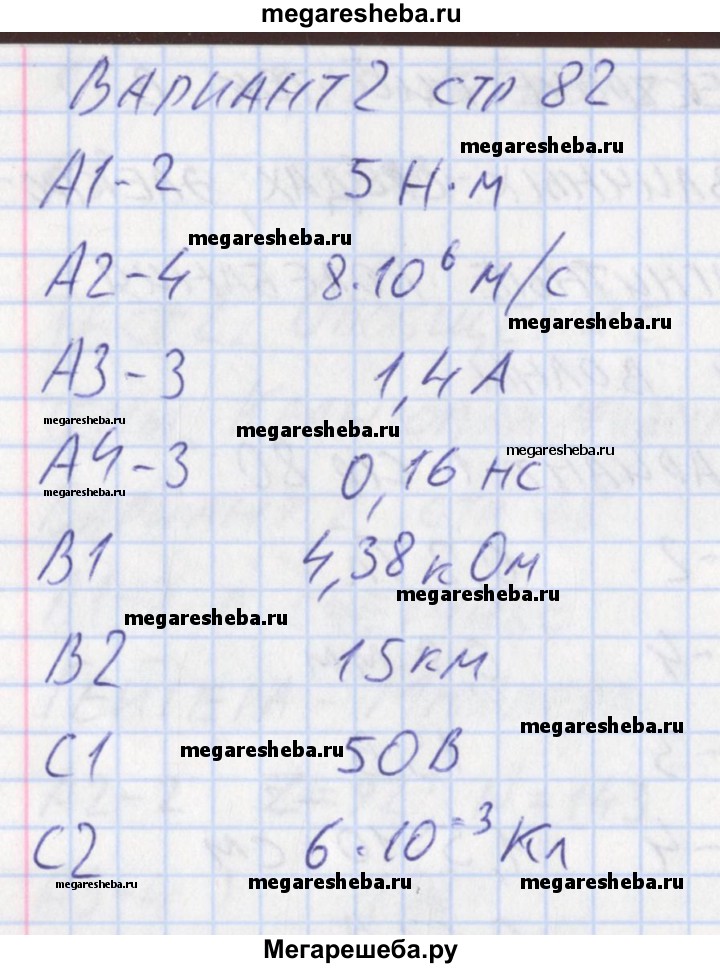 megaresheba.ru
ВАРИАНТ 2 СТР 82
megaresheba.ru
А1-2 5 Н·м
megaresheba.ru
А2-4 8·10⁶ м/с
megaresheba.ru
А3-3 1,4 А
megaresheba.ru
megaresheba.ru
А4-3 0,16 нс
megaresheba.ru
megaresheba.ru
В1 4,38 кОм
megaresheba.ru
megaresheba.ru
В2 15 км
megaresheba.ru
С1 50 В
megaresheba.ru
С2 6·10⁻³ Кл
megaresheba.ru megaresheba.ru megaresheba.ru
Мегарешеба.ру